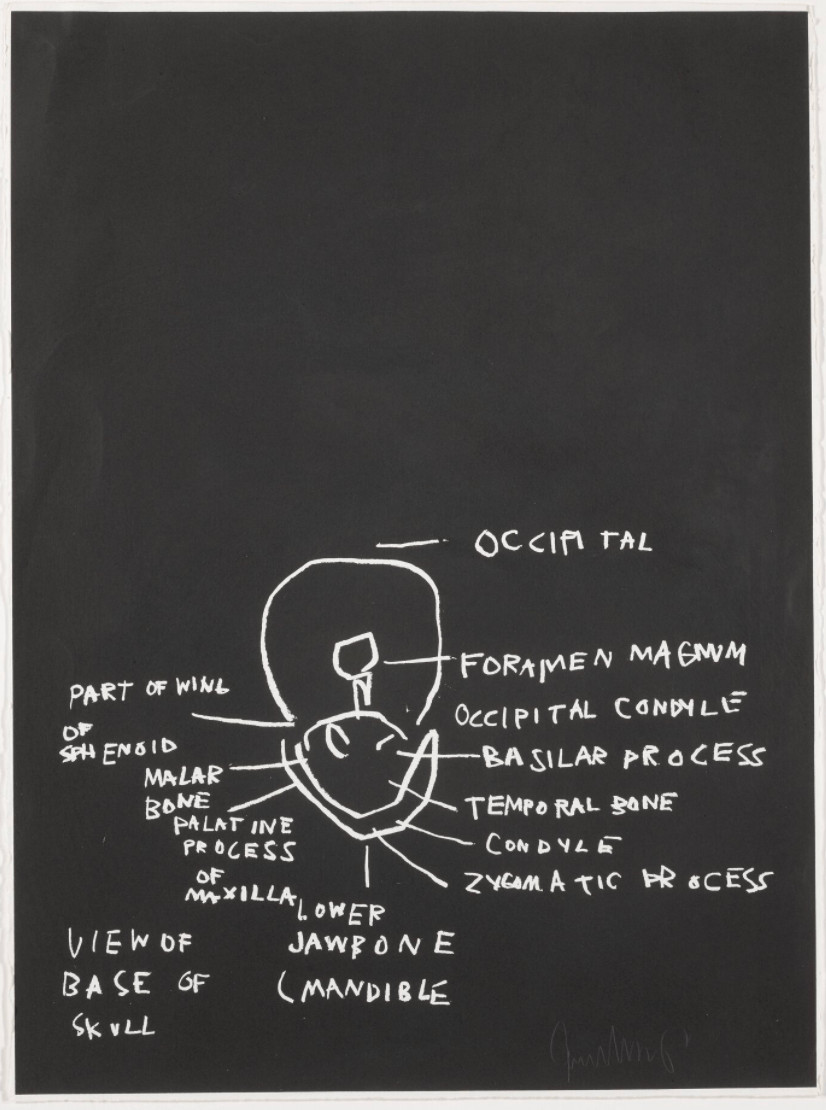 OCCIPITAL
FORAMEN MAGNUM
PART OF WING
OCCIPITAL CONDYLE
OF
SPHENOID
BASILAR PROCESS
MALAR
BONE
TEMPORAL BONE
PALATINE
PROCESS
CONDYLE
OF
MAXILLA
ZYGOMATIC PROCESS
LOWER
JAWBONE
(MANDIBLE
VIEW OF
BASE OF
SKULL